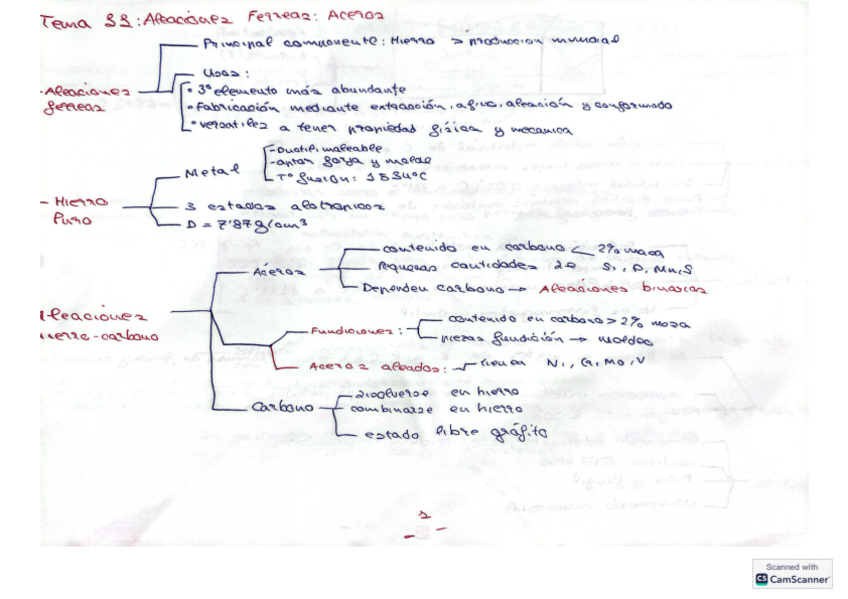 Tema 11: Aleaciones Ferreas: Aceros
Principal componente: Hierro > produccion mundial
- Aleaciones
ferreas
Usos:
• 3º elemento más abundante
• Fabricación mediante extracción, afino, aleación y conformado
• versatiles a tener propiedad física y mecanica
- Hierro
Puro
Metal
- Ductil, maleable
- aptar forja y molde
- Tº fusion: 1534ºC
3 estados alotropicos
D = 7'87 g/cm³
Aleaciones
hierro-carbono
Aceros
contenido en carbono < 2% masa
Pequeñas cantidades de Si, P, Mn, S
Dependen carbono → Aleaciones binarias
Fundiciones:
contenido en carbono > 2% masa
piezas fundición → moldeo
Aceros aleados:
tienen Ni, Cr, Mo, V
Carbono
disolverse en hierro
combinarse en hierro
estado libre gráfito
1
Scanned with
CS CamScanner